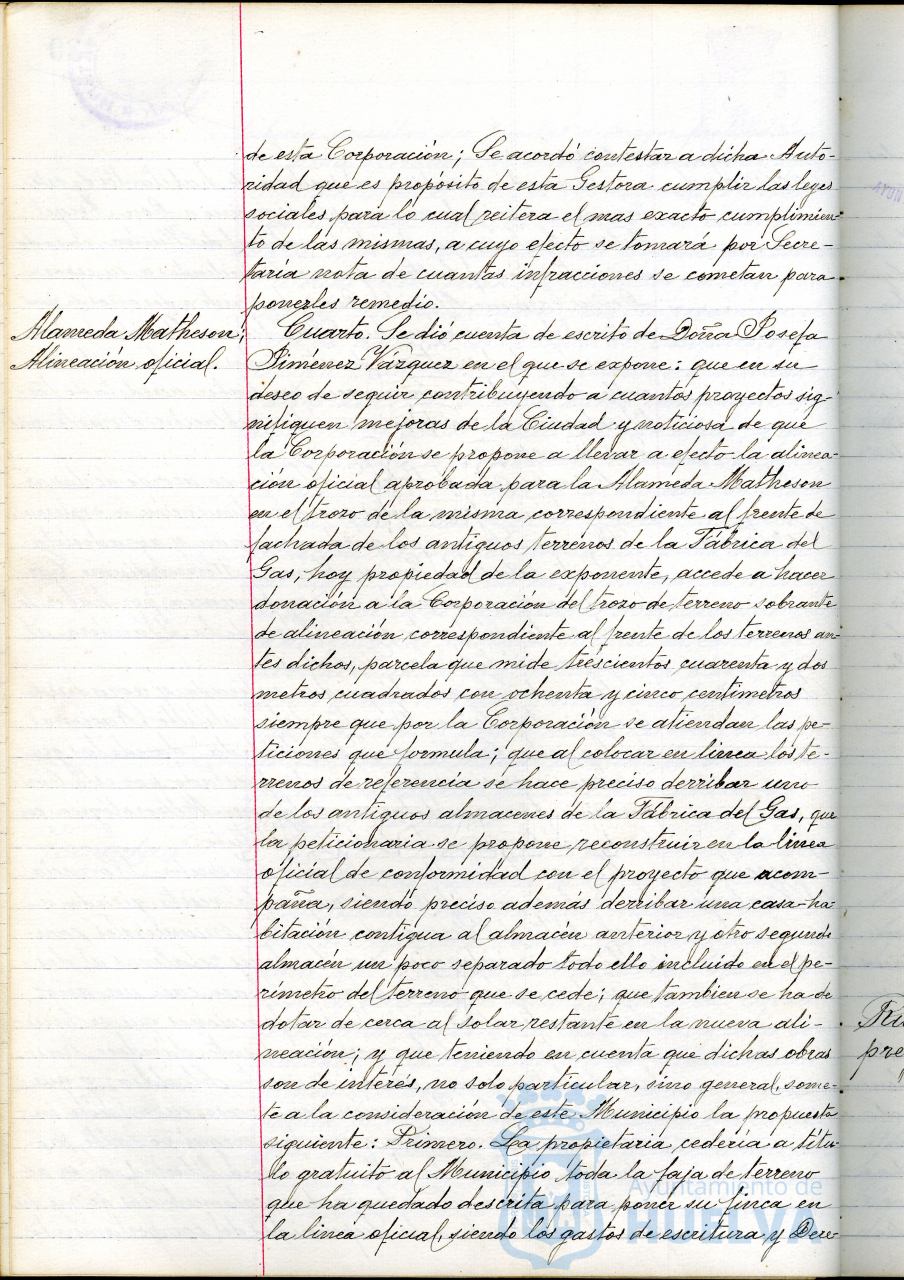 de esta Corporación; Se acordó contestar a dicha Auto-
ridad que es propósito de esta Gestora cumplir las leyes
sociales para lo cual reitera el mas exacto cumplimien-
to de las mismas, a cuyo efecto se tomará por Secre-
taría nota de cuantas infracciones se cometan para
ponerles remedio.
Alameda Matheson;
Alineación oficial.
Cuarto. Se dió cuenta de escrito de Doña Josefa
Jiménez Vázquez en el que se expone: que en su
deseo de seguir contribuyendo a cuantos proyectos sig-
nifiquen mejoras de la Ciudad y noticiosa de que
la Corporación se propone a llevar a efecto la alinea-
ción oficial aprobada para la Alameda Matheson
en el trozo de la misma correspondiente al frente de
fachada de los antiguos terrenos de la Fábrica del
Gas, hoy propiedad de la exponente, accede a hacer
donación a la Corporación del trozo de terreno sobrante
de alineación correspondiente al frente de los terrenos an-
tes dichos, parcela que mide trescientos cuarenta y dos
metros cuadrados con ochenta y cinco centimetros
siempre que por la Corporación se atiendan las pe-
ticiones que formula; que al colocar en linea los te-
rrenos de referencia se hace preciso derribar uno
de los antiguos almacenes de la Fábrica del Gas, que
la peticionaria se propone reconstruir en la linea
oficial de conformidad con el proyecto que acom-
paña, siendo preciso además derribar una casa-ha-
bitación contigua al almacén anterior y otro segundo
almacén un poco separado todo ello incluido en el pe-
rímetro del terreno que se cede; que tambien se ha de
dotar de cerca al solar restante en la nueva ali-
neación; y que teniendo en cuenta que dichas obras
son de interés, no solo particular, sino general, some-
te a la consideración de este Municipio la propuesta
siguiente: Primero. La propietaria cedería a títu-
lo gratuito al Municipio toda la faja de terreno
que ha quedado descrita para poner su finca en
la linea oficial, siendo los gastos de escritura y Dere-
Ayuntamiento de
HUELVA